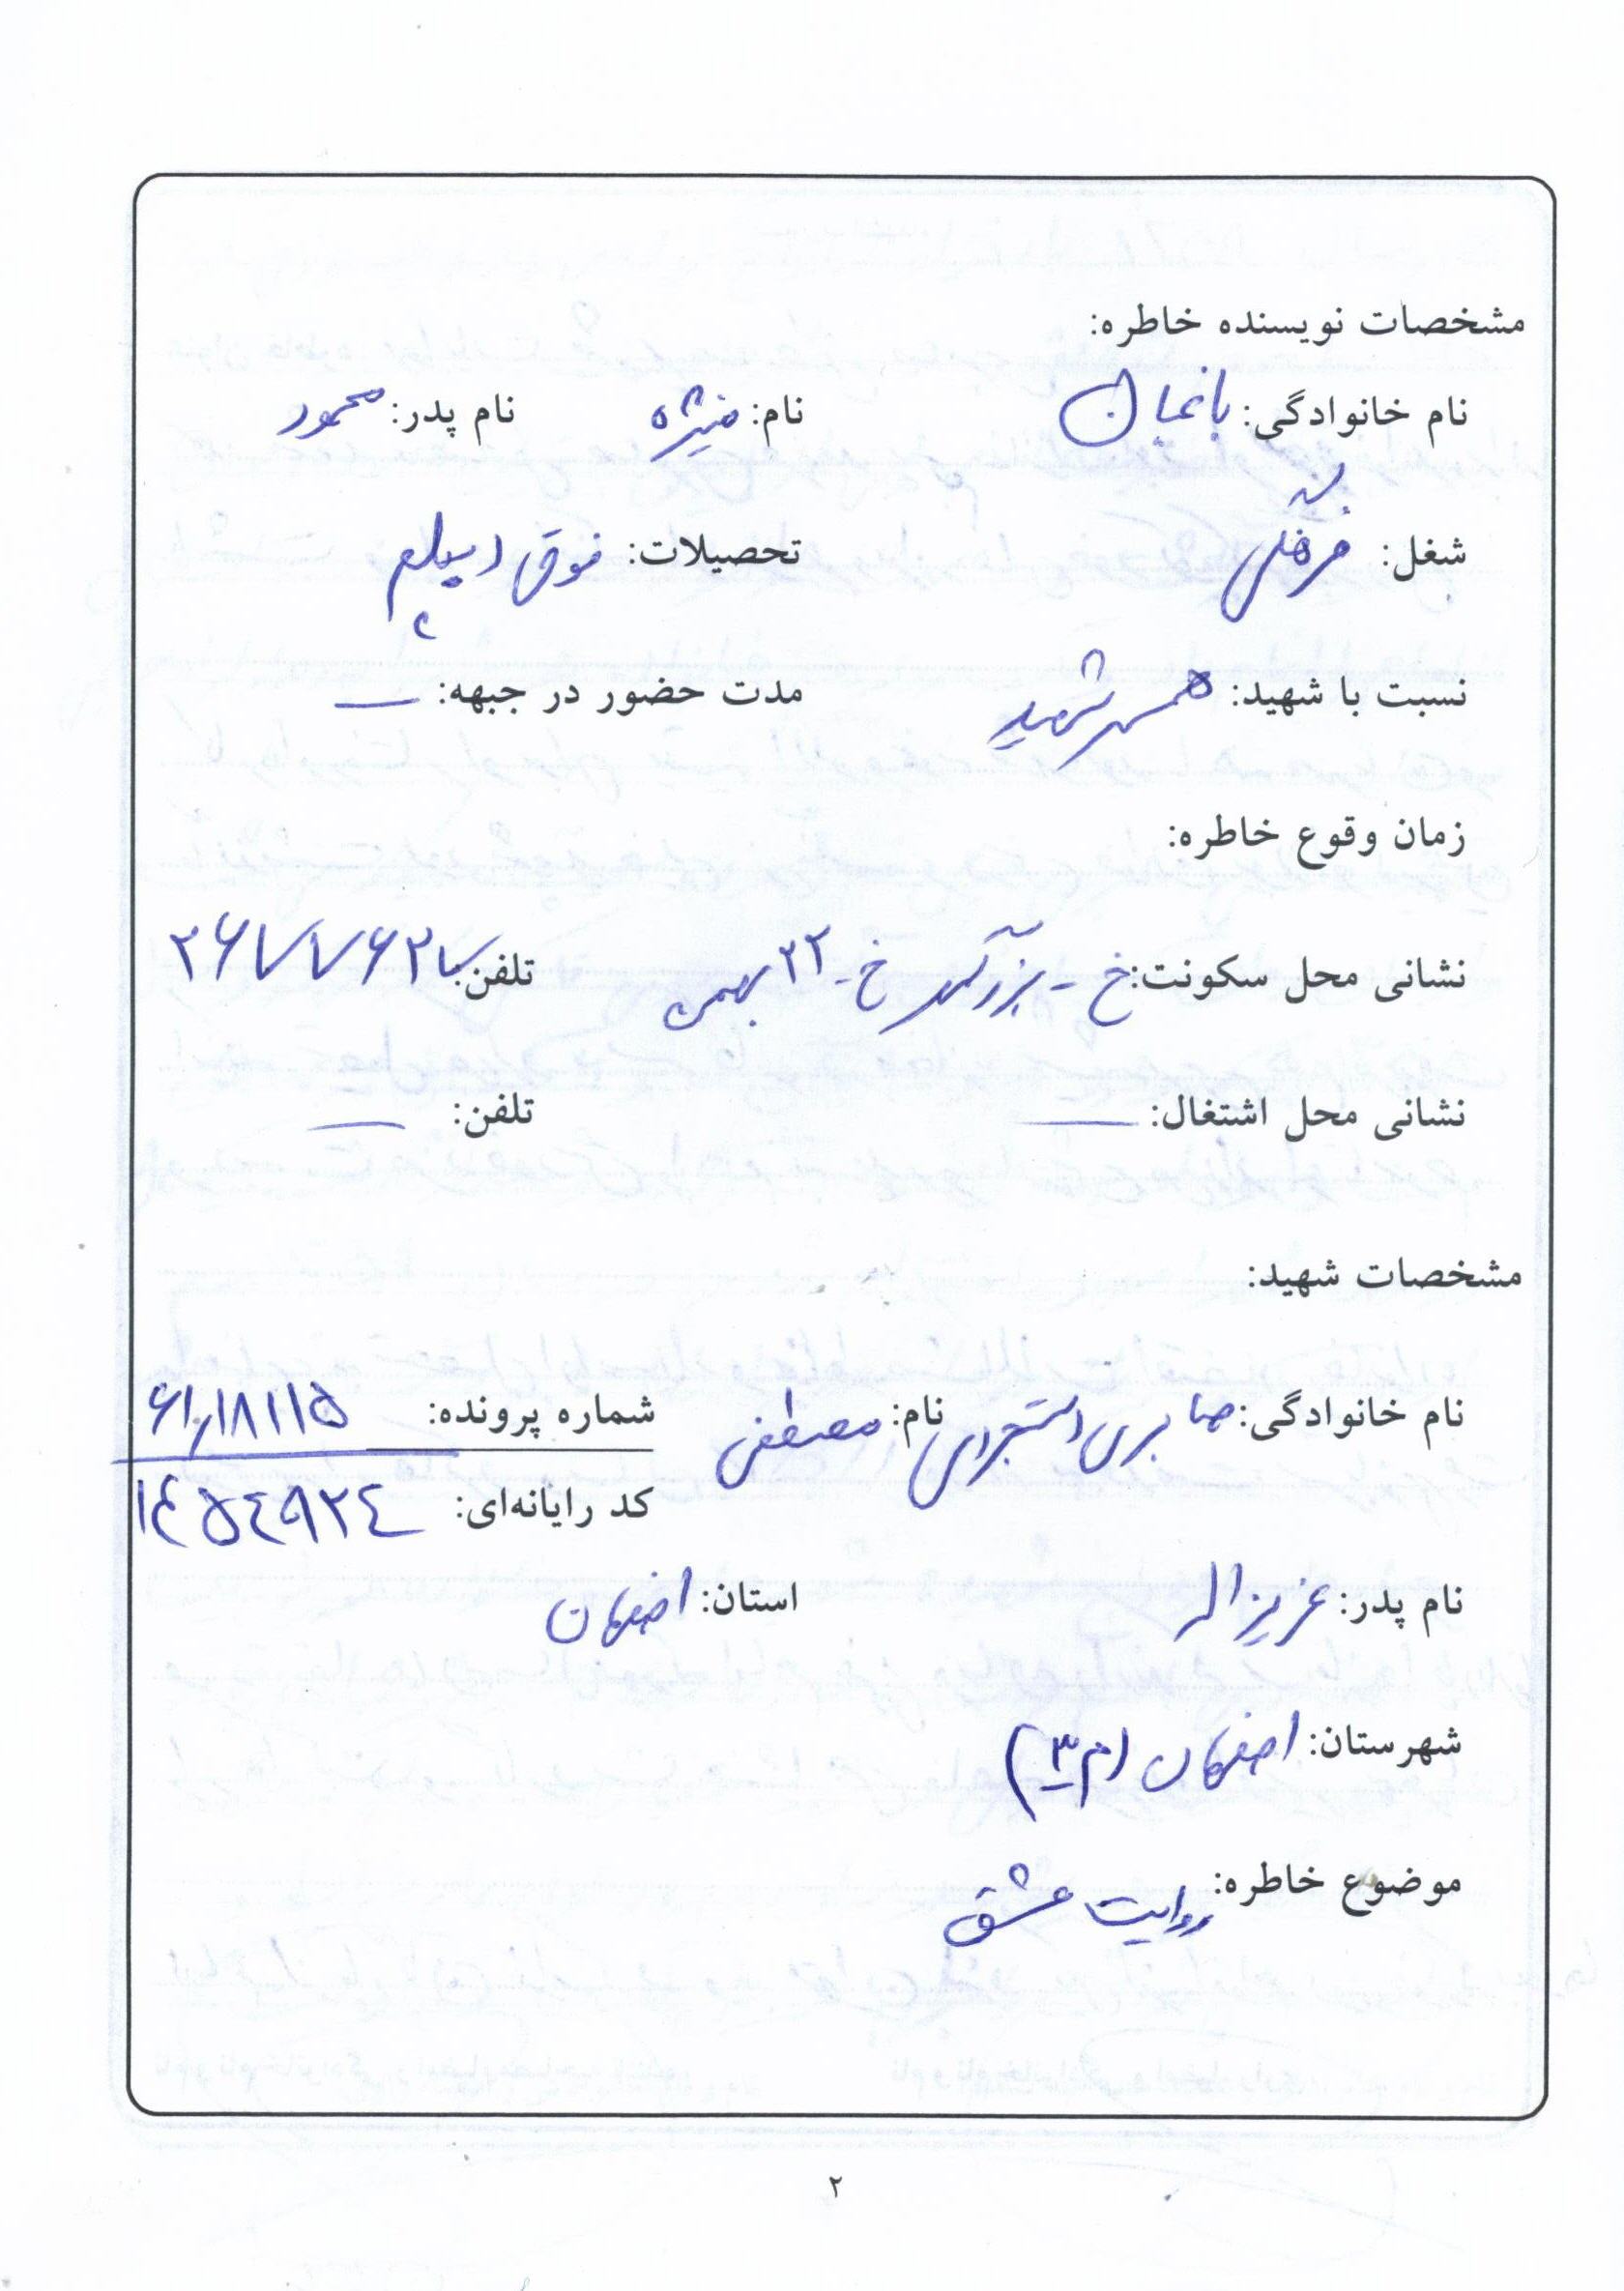 مشخصات نویسنده خاطره:
نام خانوادگی: باغبان نام: منیژه نام پدر: محمود
شغل: فرهنگی تحصیلات: فوق دیپلم
نسبت با شهید: همسر شهید مدت حضور در جبهه: ـ
زمان وقوع خاطره:
نشانی محل سکونت: خ - بزرگمهر خ - ۲۲ بهمن تلفن: ۲۶۷۷۶۲۷
نشانی محل اشتغال: ـ تلفن: ـ
مشخصات شهید:
نام خانوادگی: صابری نام: مصطفی شماره پرونده: ۶۱٫۱۸۱۱۵
کد رایانه‌ای: ۱۴۵۴۹۲۴
نام پدر: عزیزاله استان: اصفهان
شهرستان: اصفهان (م۳)
موضوع خاطره: روایت عشق
۲